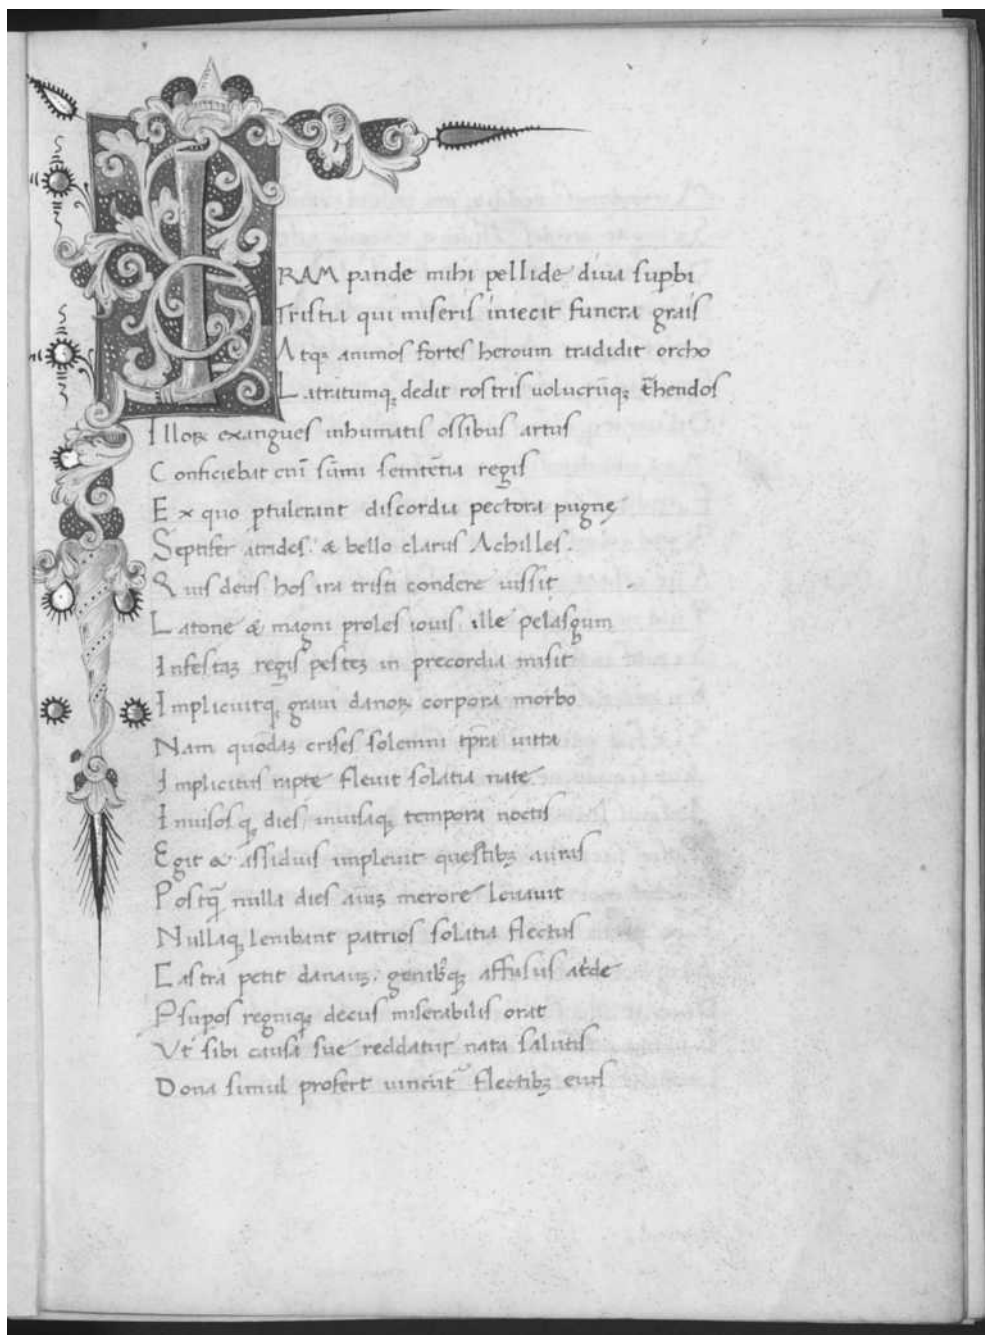 IRAM pande mihi pellide diua supbi
Tristia qui miseris iniecit funera grais
Atqꝫ animos fortes heroum tradidit orcho
Latratumqꝫ dedit rostris uolucrūqꝫ t̄hendos
Illoꝝ exangues inhumatis ossibus artus
Conficiebat eni᷒ sūmi sentētia regis
Ex quo ptulerant discordia pectora pugnę
Sceptifer atrides. & bello clarus Achilles.
Quis deus hos ira tristi condere iussit
Latone & magni proles iouis. ille pelasgum
Infestaꝫ regis pesteꝫ in precordia misit
Implicuitqꝫ graui danoꝝ corpora morbo
Nam quōdaꝫ crises solemni tp̄ra uitta
Implicitus rapte fleuit solatia nate
Inuisosqꝫ dies inuisaqꝫ tempora noctis
Egit & assiduis impleuit questibꝫ auras
Postq̄ nulla dies aīuꝫ merore leuauit
Nullaqꝫ lenibant patrios solatia fletus
Castra petit danauꝫ. genibꝰqꝫ affusus at'de
Psupos regniqꝫ decus miserabilis orat
Vt sibi causa sue reddatur nata salutis
Dona simul profert uincūt' flectibꝫ eius